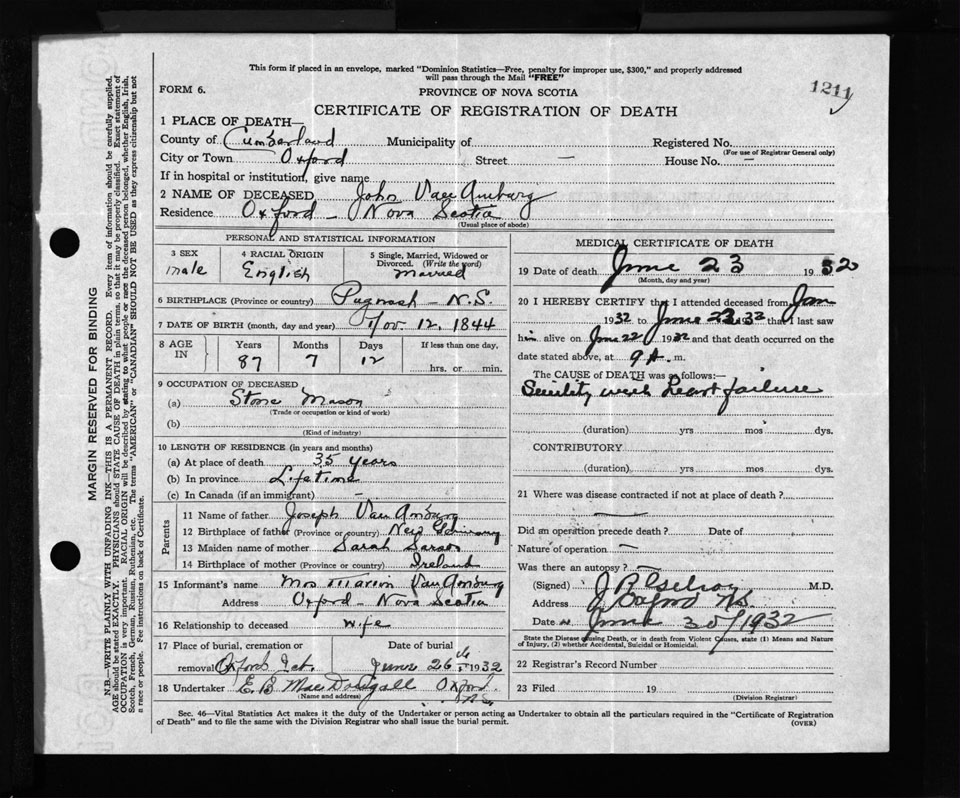 This form if placed in an envelope, marked "Dominion Statistics—Free, penalty for improper use, $300," and properly addressed
will pass through the Mail "FREE"
FORM 6.
PROVINCE OF NOVA SCOTIA
1211
CERTIFICATE OF REGISTRATION OF DEATH
1 PLACE OF DEATH—
County of Cumberland Municipality of Registered No.
(For use of Registrar General only)
City or Town Oxford Street — House No. —
If in hospital or institution, give name
2 NAME OF DECEASED John Van Amburg
Residence Oxford - Nova Scotia
(Usual place of abode)
PERSONAL AND STATISTICAL INFORMATION
3 SEX
male
4 RACIAL ORIGIN
English
5 Single, Married, Widowed or
Divorced. (Write the word)
Married
6 BIRTHPLACE (Province or country) Pugwash - N.S.
7 DATE OF BIRTH (month, day and year) Nov. 12, 1844
8 AGE IN Years Months Days If less than one day,
87 7 12
hrs. or min.
9 OCCUPATION OF DECEASED
(a) Stone Mason
(Trade or occupation or kind of work)
(b)
(Kind of industry)
10 LENGTH OF RESIDENCE (in years and months)
(a) At place of death 35 years
(b) In province Lifetime
(c) In Canada (if an immigrant) —
Parents
11 Name of father Joseph Van Amburg
12 Birthplace of father (Province or country) New
13 Maiden name of mother Sarah
14 Birthplace of mother (Province or country) Ireland
15 Informant's name Mrs Marion Van Amburg
Address Oxford - Nova Scotia
16 Relationship to deceased wife
17 Place of burial, cremation or Date of burial
removal Oxford June 26th 1932
18 Undertaker E. B. MacDougall Oxford N.S.
(Name and address)
MEDICAL CERTIFICATE OF DEATH
19 Date of death June 23 1932
(Month, day and year)
20 I HEREBY CERTIFY that I attended deceased from Jan
1932 to June 23 1932 that I last saw
him alive on June 22 1932 and that death occurred on the
date stated above, at 9 A. m.
The CAUSE of DEATH was as follows:
Senility with heart failure
(duration) yrs mos dys.
CONTRIBUTORY
(duration) yrs. mos. dys.
21 Where was disease contracted if not at place of death?
Did an operation precede death? Date of
Nature of operation —
Was there an autopsy? —
(Signed) M.D.
Address Oxford N.S.
Date June 30/1932
State the Disease causing Death, or in death from Violent Causes, state (1) Means and Nature
of Injury, (2) whether Accidental, Suicidal or Homicidal.
22 Registrar's Record Number
23 Filed 19
(Division Registrar)
Sec. 46—Vital Statistics Act makes it the duty of the Undertaker or person acting as Undertaker to obtain all the particulars required in the "Certificate of Registration
of Death" and to file the same with the Division Registrar who shall issue the burial permit.
(OVER)
MARGIN RESERVED FOR BINDING
N.B.—WRITE PLAINLY WITH UNFADING INK—THIS IS A PERMANENT RECORD. Every item of information should be carefully supplied.
AGE should be stated EXACTLY. PHYSICIANS should STATE CAUSE OF DEATH in plain terms, so that it may be properly classified. Exact statement of
OCCUPATION is very important. RACIAL ORIGIN will be described by stating to what people or race the deceased person belonged, whether English, Irish,
Scotch, French, German, Russian, Ruthenian, etc. The terms "AMERICAN" or "CANADIAN" SHOULD NOT BE USED as they express citizenship but not
a race or people. See instructions on back of Certificate.